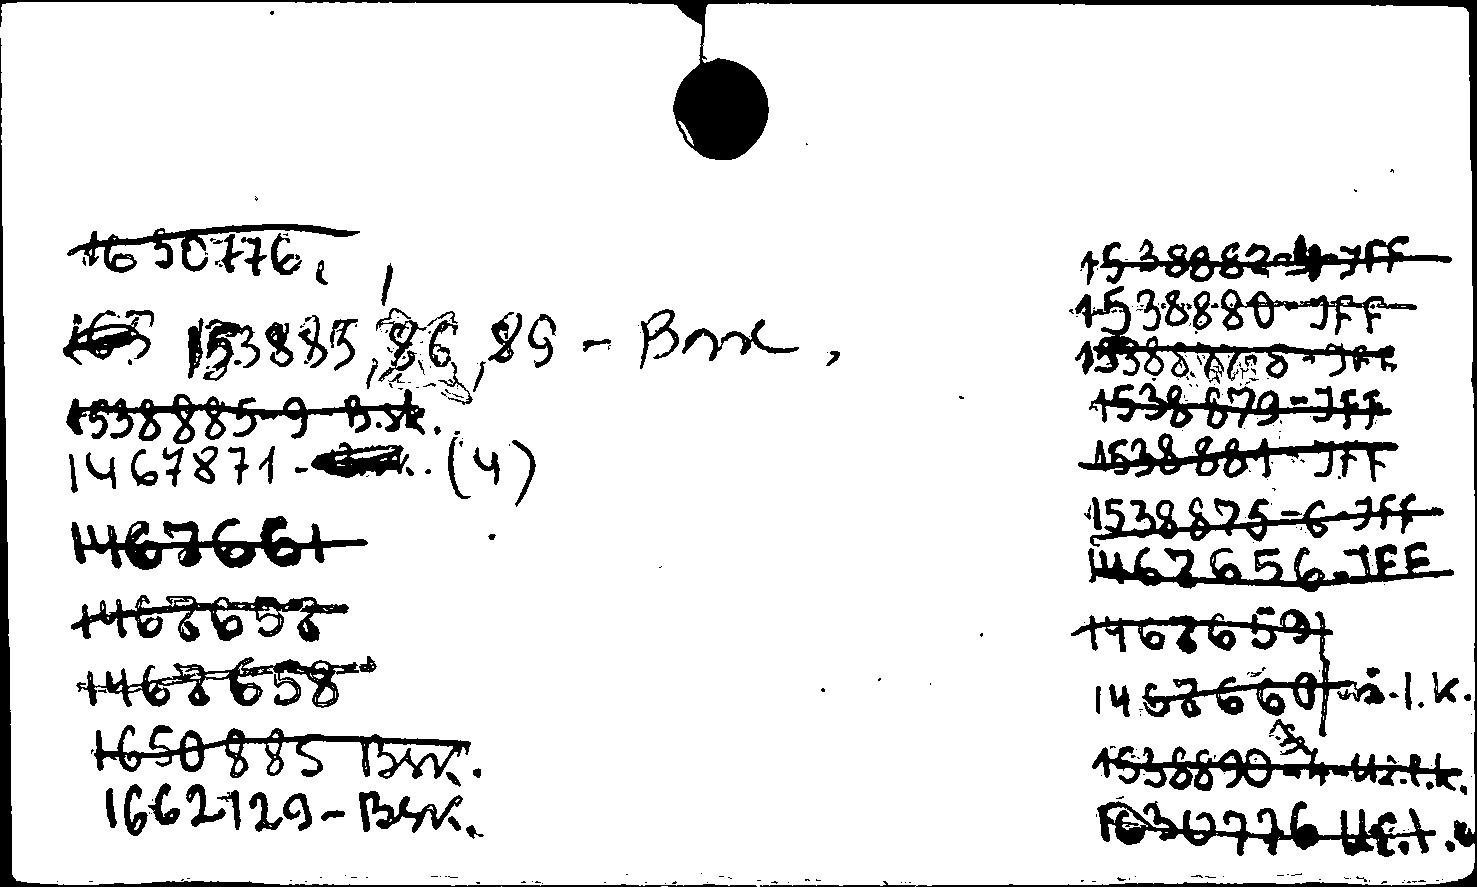 1650776.
153885 86, 89 -
1538885-9-B.sk.
1467871- (4)
1467661
1467657
1467658
1650885 Bsk.
1662129-Bsk.
1538882-4-JFF
1538880-JFF
-JFF
1538879-JFF
1538881-JFF
1538875-6-JFF
1467656-JFF
1467659
1467660
1538890-4-